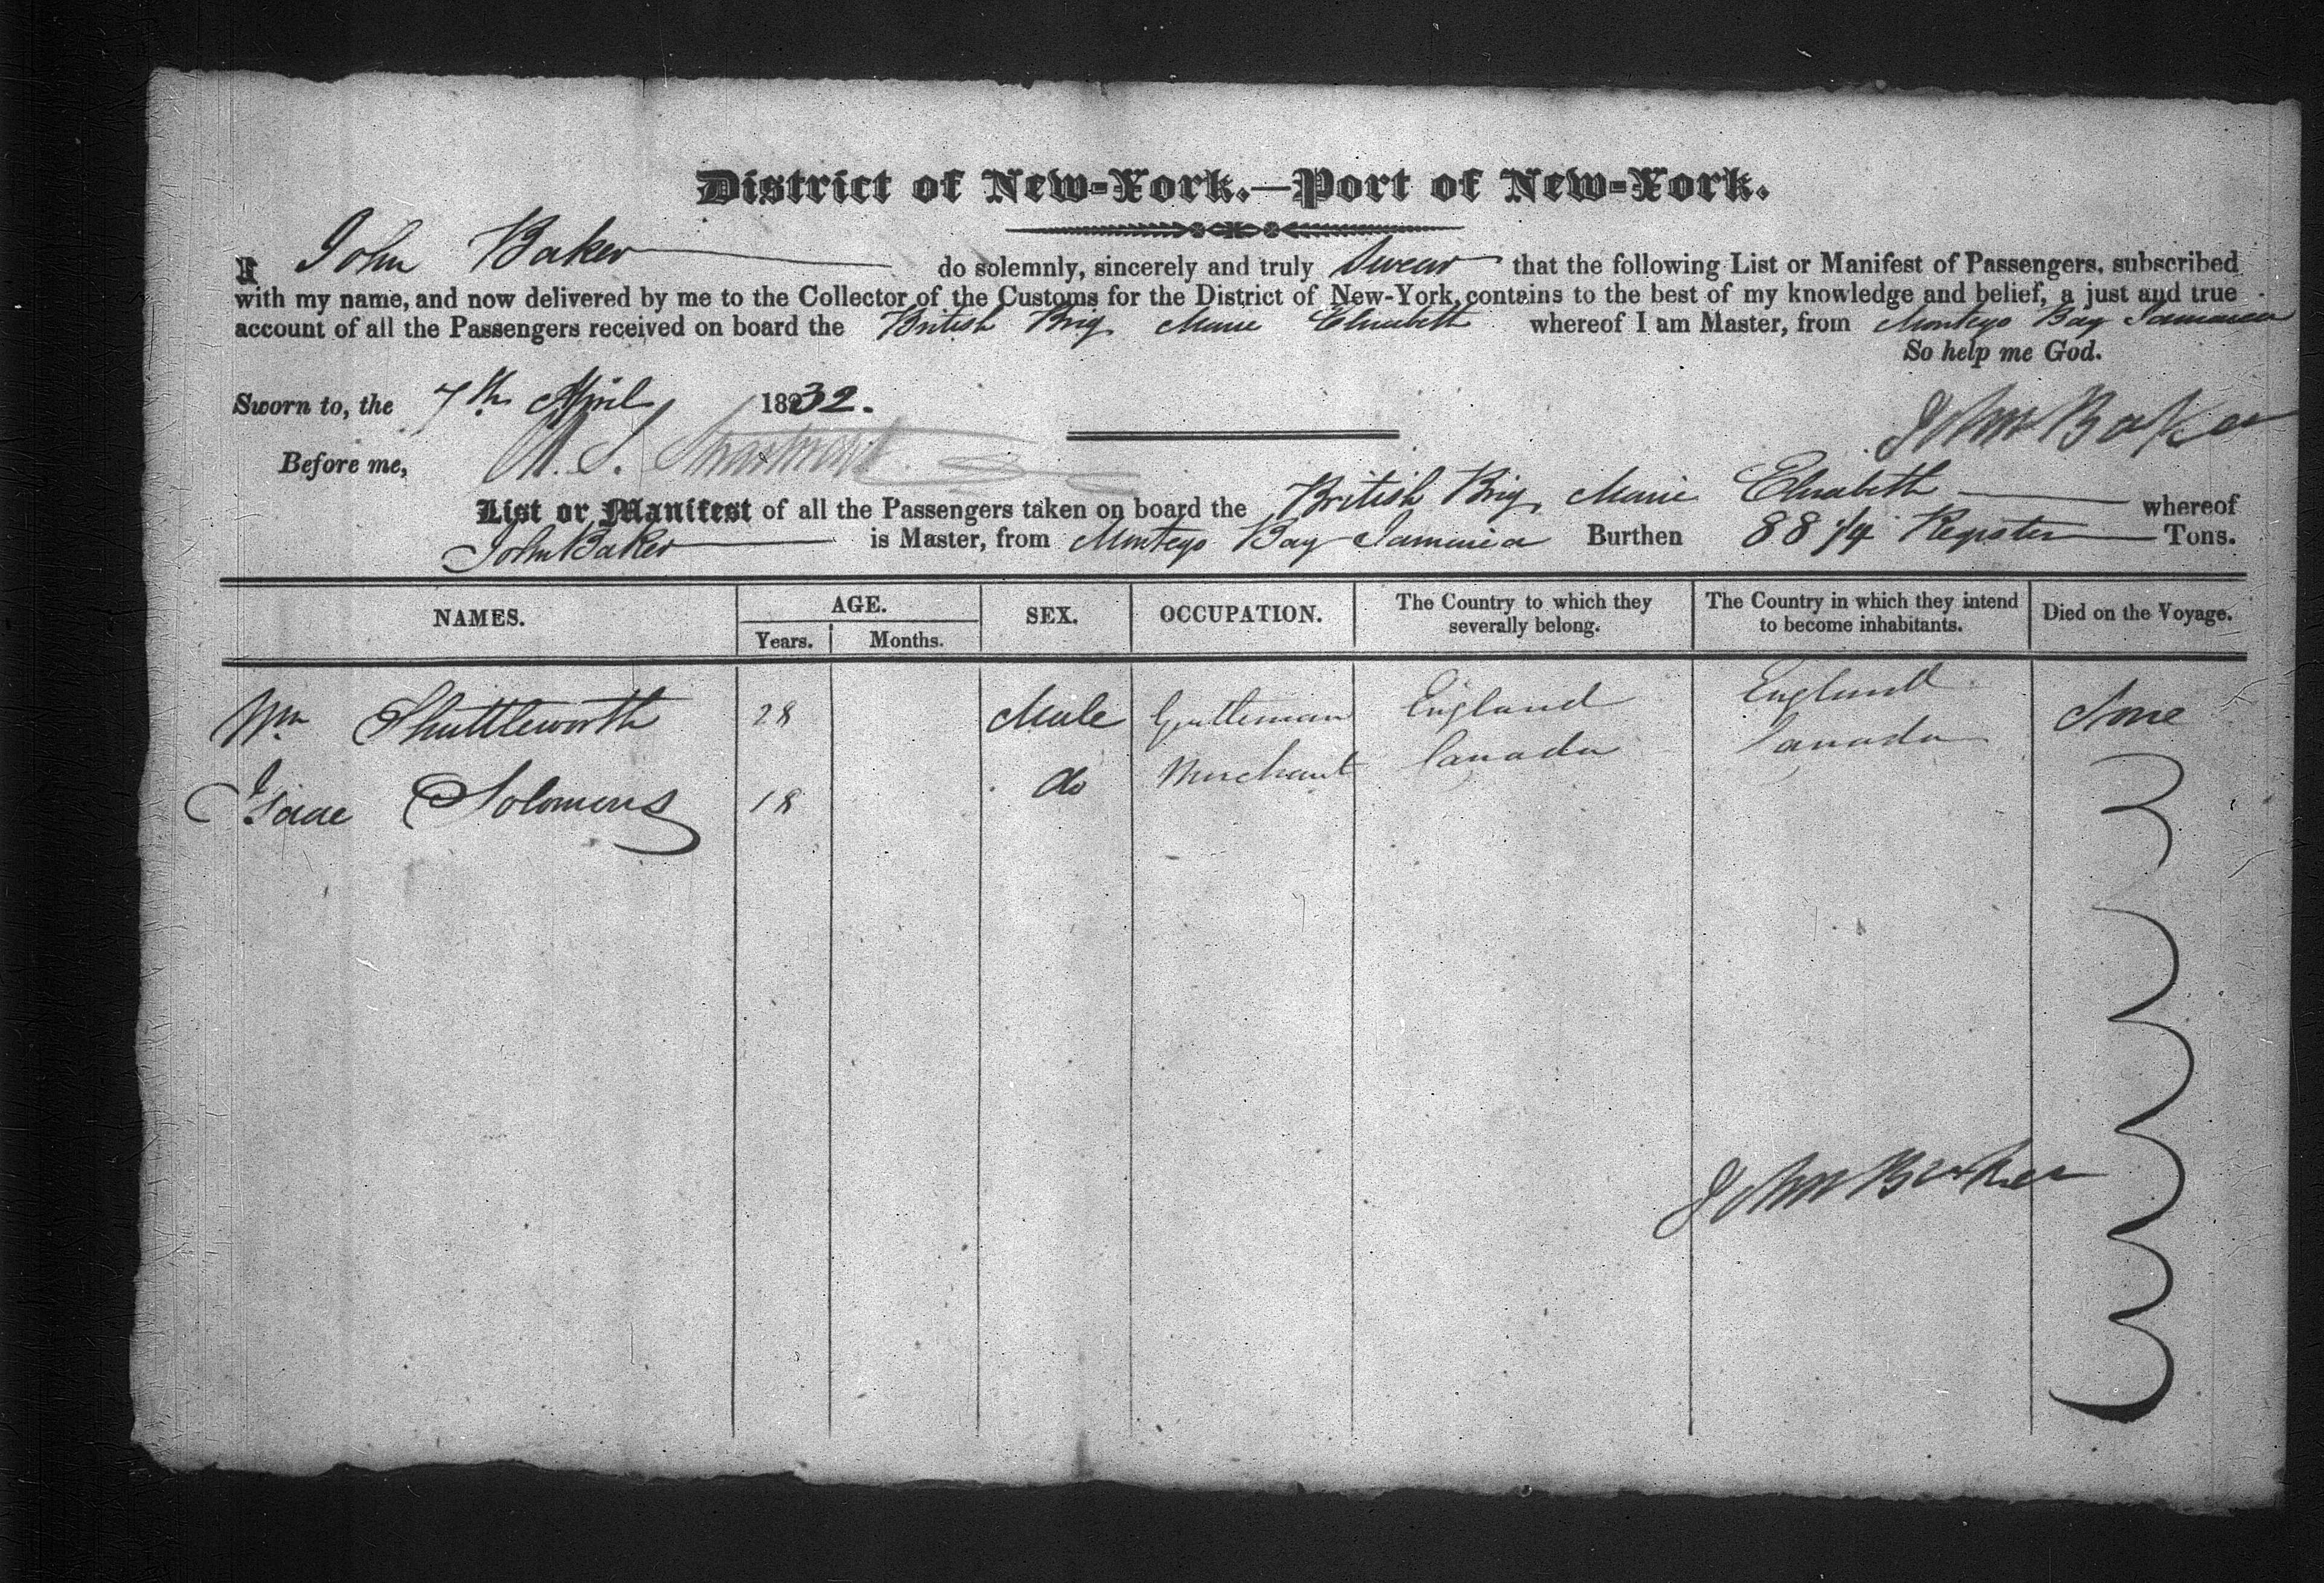 District of New-York.—Port of New-York.
I John Baker do solemnly, sincerely and truly Swear that the following List or Manifest of Passengers, subscribed
with my name, and now delivered by me to the Collector of the Customs for the District of New-York, contains to the best of my knowledge and belief, a just and true
account of all the Passengers received on board the British Brig Marie Elizabeth whereof I am Master, from Montego Bay Jamaica
So help me God.
Sworn to, the 7th April 1832.
John Baker
Before me,
List or Manifest of all the Passengers taken on board the British Brig Marie Elizabeth whereof
John Baker is Master, from Montego Bay Jamaica Burthen 88 Register Tons.
NAMES. AGE. SEX. OCCUPATION. The Country to which they severally belong. The Country in which they intend to become inhabitants. Died on the Voyage.
Years. Months.
Wm Shuttleworth 28 Male Gentleman England England None
Isaac Solomons 18 do Merchant Canada Canada
John Baker